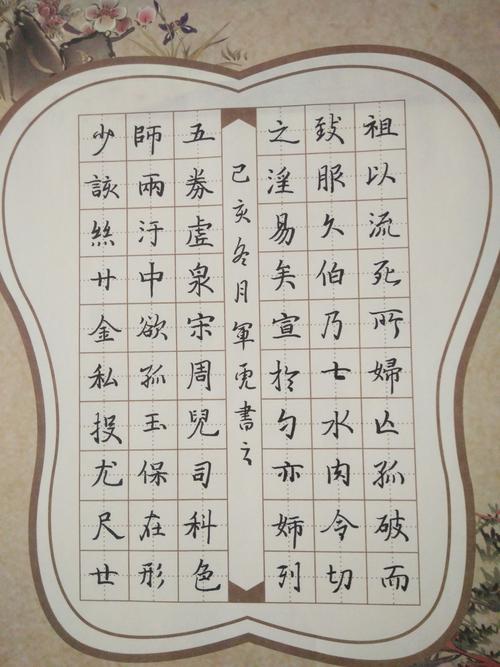 祖以流死所婦亾孤破而
致服久伯乃七水肉令切
之淫易矣宣於勻亦姉列
己亥冬月軍書之
五券虛泉宋周兒司科色
師兩汙中欲孤玉保在形
少該絲廿金私投尤尺世